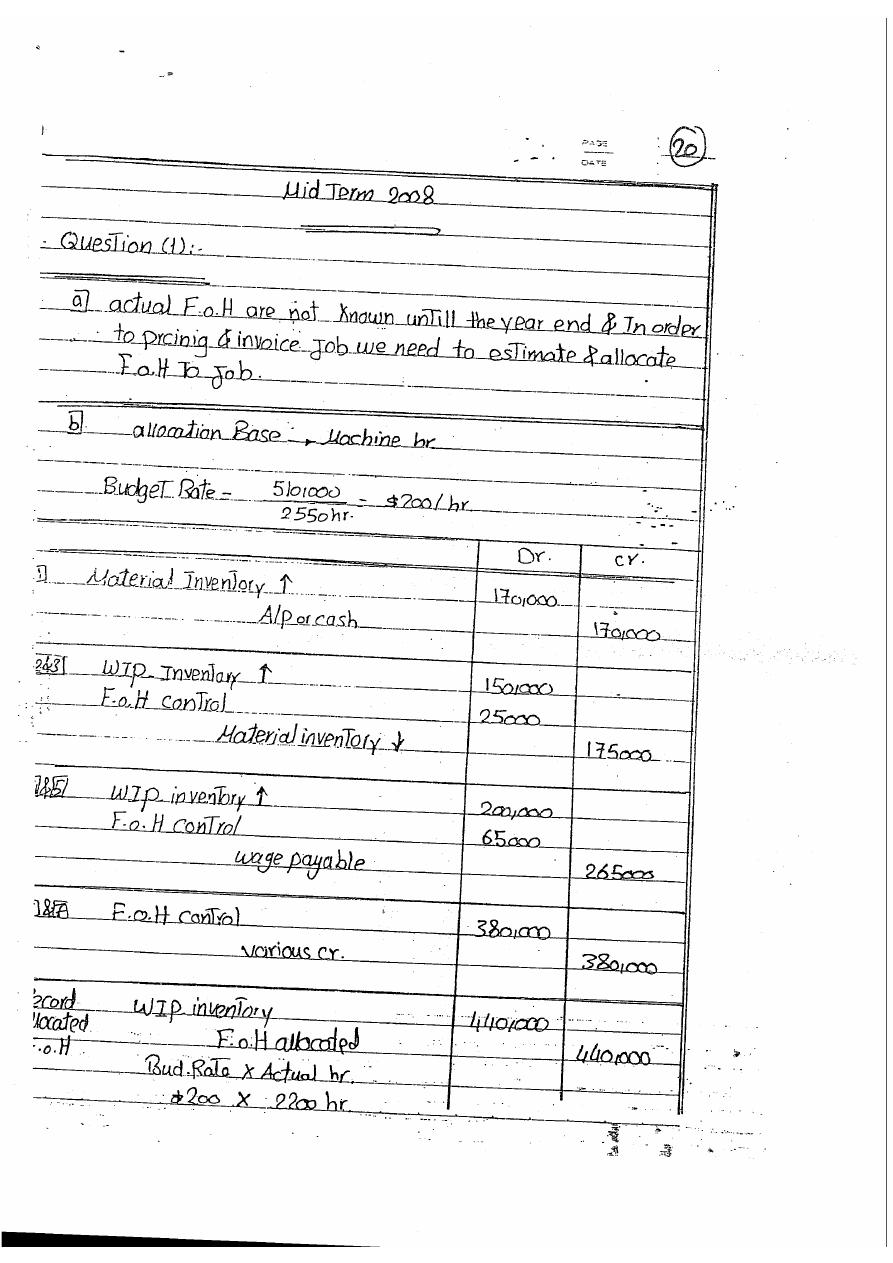 PAGE
20
DATE
Mid Term 2008
Question (1):-
a] actual F.o.H are not known untill the year end & In order
to prcinig & invoice Job we need to estimate & allocate
F.o.H To Job.
b] allocation Base → Machine hr
Budget Rate - 510,000 / 2550 hr. = $200/hr
Dr. cr.
1] Material Inventory ↑ 170,000
A/P or cash 170,000
2&3] WIP Inventory ↑ 150,000
F.o.H control 25000
Material inventory ↓ 175000
&5] WIP inventory ↑ 200,000
F.o.H control 65000
wage payable 265000
F.o.H control 380,000
various cr. 380,000
ecord WIP inventory 440,000
llocated F.o.H allocated 440,000
F.o.H Bud. Rate X Actual hr.
$200 X 2200 hr